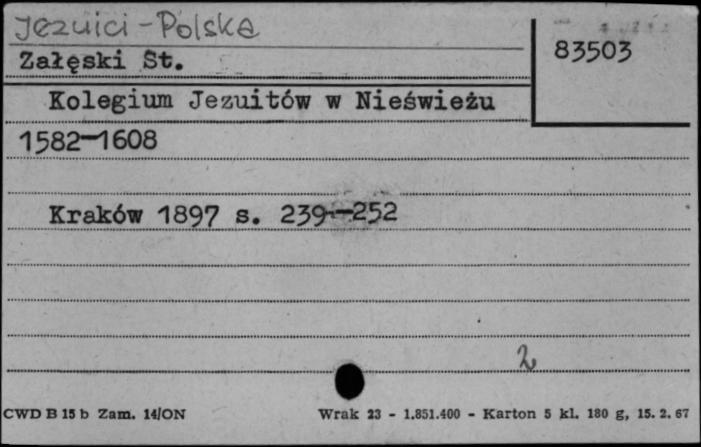 Jezuici - Polska
83503
Załęski St.
Kolegium Jezuitów w Nieświeżu
1582-1608
Kraków 1897 s. 239-252
2
CWD B 15 b Zam. 14/ON
Wrak 23 - 1.851.400 - Karton 5 kl. 180 g, 15. 2. 67